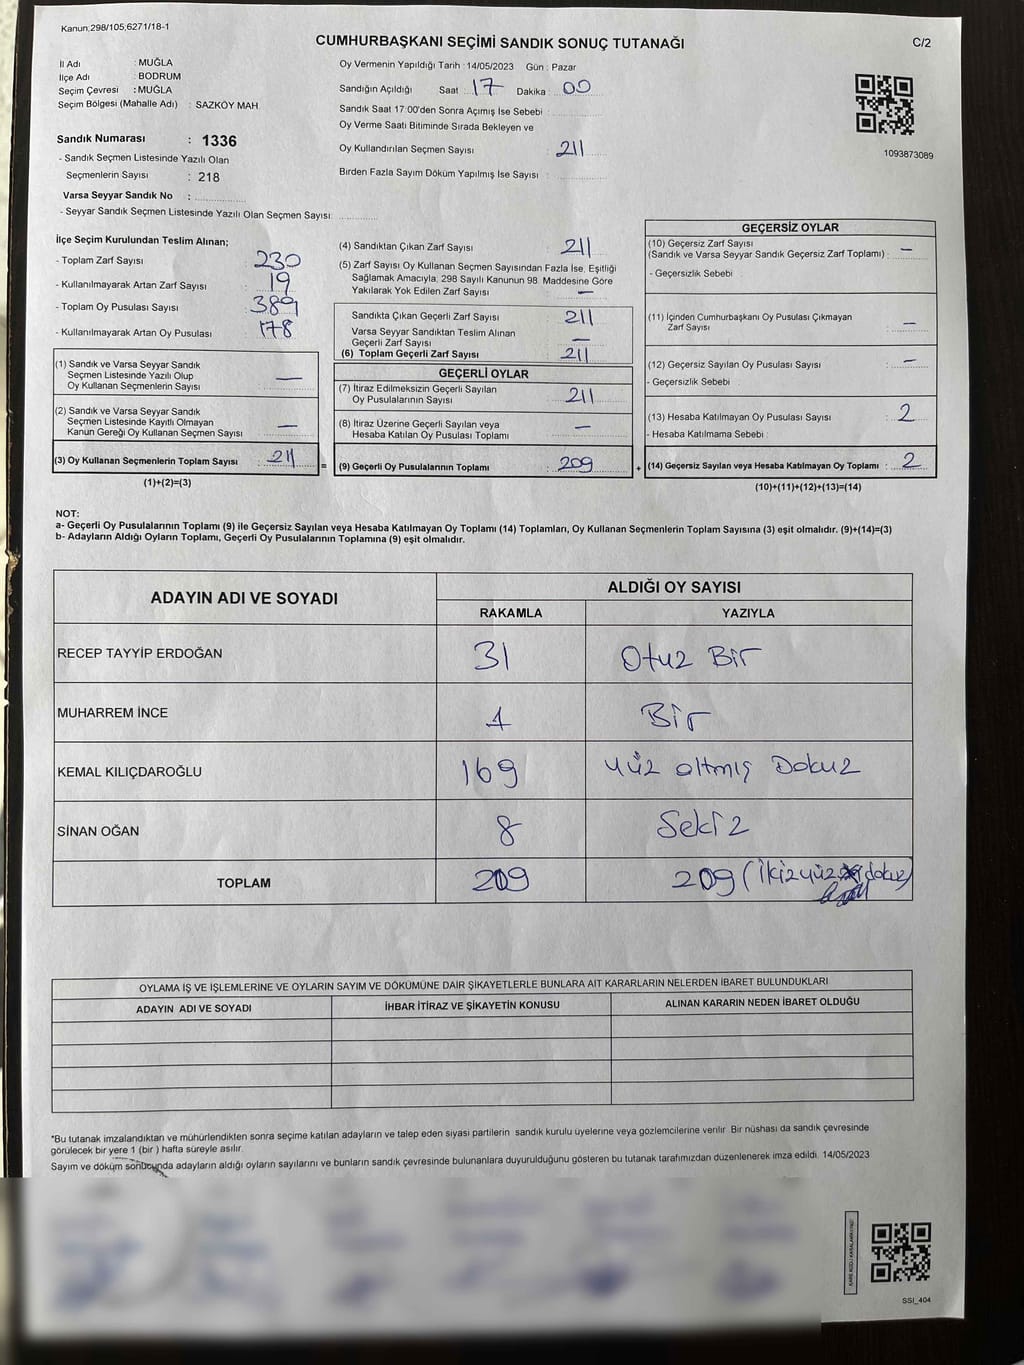 Kanun;298/105,6271/18-1
CUMHURBAŞKANI SEÇİMİ SANDIK SONUÇ TUTANAĞI
C/2
İl Adı : MUĞLA
İlçe Adı : BODRUM
Seçim Çevresi : MUĞLA
Seçim Bölgesi (Mahalle Adı) : SAZKÖY MAH.
Oy Vermenin Yapıldığı Tarih : 14/05/2023 Gün : Pazar
Sandığın Açıldığı Saat : 17 Dakika : 00
Sandık Saat 17:00'den Sonra Açmış İse Sebebi :
Oy Verme Saati Bitiminde Sırada Bekleyen ve
Oy Kullandırılan Seçmen Sayısı : 211
Birden Fazla Sayım Döküm Yapılmış İse Sayısı :
1093873089
Sandık Numarası : 1336
- Sandık Seçmen Listesinde Yazılı Olan
Seçmenlerin Sayısı : 218
Varsa Seyyar Sandık No :
- Seyyar Sandık Seçmen Listesinde Yazılı Olan Seçmen Sayısı:
İlçe Seçim Kurulundan Teslim Alınan;
- Toplam Zarf Sayısı : 230
- Kullanılmayarak Artan Zarf Sayısı : 19
- Toplam Oy Pusulası Sayısı : 389
- Kullanılmayarak Artan Oy Pusulası : 178
(1) Sandık ve Varsa Seyyar Sandık
Seçmen Listesinde Yazılı Olup
Oy Kullanan Seçmenlerin Sayısı : —
(2) Sandık ve Varsa Seyyar Sandık
Seçmen Listesinde Kayıtlı Olmayan
Kanun Gereği Oy Kullanan Seçmen Sayısı : —
(3) Oy Kullanan Seçmenlerin Toplam Sayısı : 211
(1)+(2)=(3)
(4) Sandıktan Çıkan Zarf Sayısı : 211
(5) Zarf Sayısı Oy Kullanan Seçmen Sayısından Fazla İse, Eşitliği
Sağlamak Amacıyla; 298 Sayılı Kanunun 98. Maddesine Göre
Yakılarak Yok Edilen Zarf Sayısı : —
Sandıkta Çıkan Geçerli Zarf Sayısı : 211
Varsa Seyyar Sandıktan Teslim Alınan
Geçerli Zarf Sayısı : —
(6) Toplam Geçerli Zarf Sayısı : 211
GEÇERLİ OYLAR
(7) İtiraz Edilmeksizin Geçerli Sayılan
Oy Pusulalarının Sayısı : 211
(8) İtiraz Üzerine Geçerli Sayılan veya
Hesaba Katılan Oy Pusulası Toplamı : —
= (9) Geçerli Oy Pusulalarının Toplamı : 209
GEÇERSİZ OYLAR
(10) Geçersiz Zarf Sayısı
(Sandık ve Varsa Seyyar Sandık Geçersiz Zarf Toplamı) : —
- Geçersizlik Sebebi :
(11) İçinden Cumhurbaşkanı Oy Pusulası Çıkmayan
Zarf Sayısı : —
(12) Geçersiz Sayılan Oy Pusulası Sayısı : —
- Geçersizlik Sebebi
(13) Hesaba Katılmayan Oy Pusulası Sayısı : 2
- Hesaba Katılmama Sebebi :
+ (14) Geçersiz Sayılan veya Hesaba Katılmayan Oy Toplamı : 2
(10)+(11)+(12)+(13)=(14)
NOT:
a- Geçerli Oy Pusulalarının Toplamı (9) ile Geçersiz Sayılan veya Hesaba Katılmayan Oy Toplamı (14) Toplamları, Oy Kullanan Seçmenlerin Toplam Sayısına (3) eşit olmalıdır. (9)+(14)=(3)
b- Adayların Aldığı Oyların Toplamı, Geçerli Oy Pusulalarının Toplamına (9) eşit olmalıdır.
ADAYIN ADI VE SOYADI
ALDIĞI OY SAYISI
RAKAMLA YAZIYLA
RECEP TAYYİP ERDOĞAN 31 Otuz Bir
MUHARREM İNCE 1 Bir
KEMAL KILIÇDAROĞLU 169 yüz altmış Dokuz
SİNAN OĞAN 8 Sekiz
TOPLAM 209 209 (İkizyüz dokuz)
OYLAMA İŞ VE İŞLEMLERİNE VE OYLARIN SAYIM VE DÖKÜMÜNE DAİR ŞİKAYETLERLE BUNLARA AİT KARARLARIN NELERDEN İBARET BULUNDUKLARI
ADAYIN ADI VE SOYADI İHBAR İTİRAZ VE ŞİKAYETİN KONUSU ALINAN KARARIN NEDEN İBARET OLDUĞU
*Bu tutanak imzalandıktan ve mühürlendikten sonra seçime katılan adayların ve talep eden siyasi partilerin sandık kurulu üyelerine veya gözlemcilerine verilir. Bir nüshası da sandık çevresinde
görülecek bir yere 1 (bir ) hafta süreyle asılır.
Sayım ve döküm sonucunda adayların aldığı oyların sayılarını ve bunların sandık çevresinde bulunanlara duyurulduğunu gösteren bu tutanak tarafımızdan düzenlenerek imza edildi. 14/05/2023
SSI_404